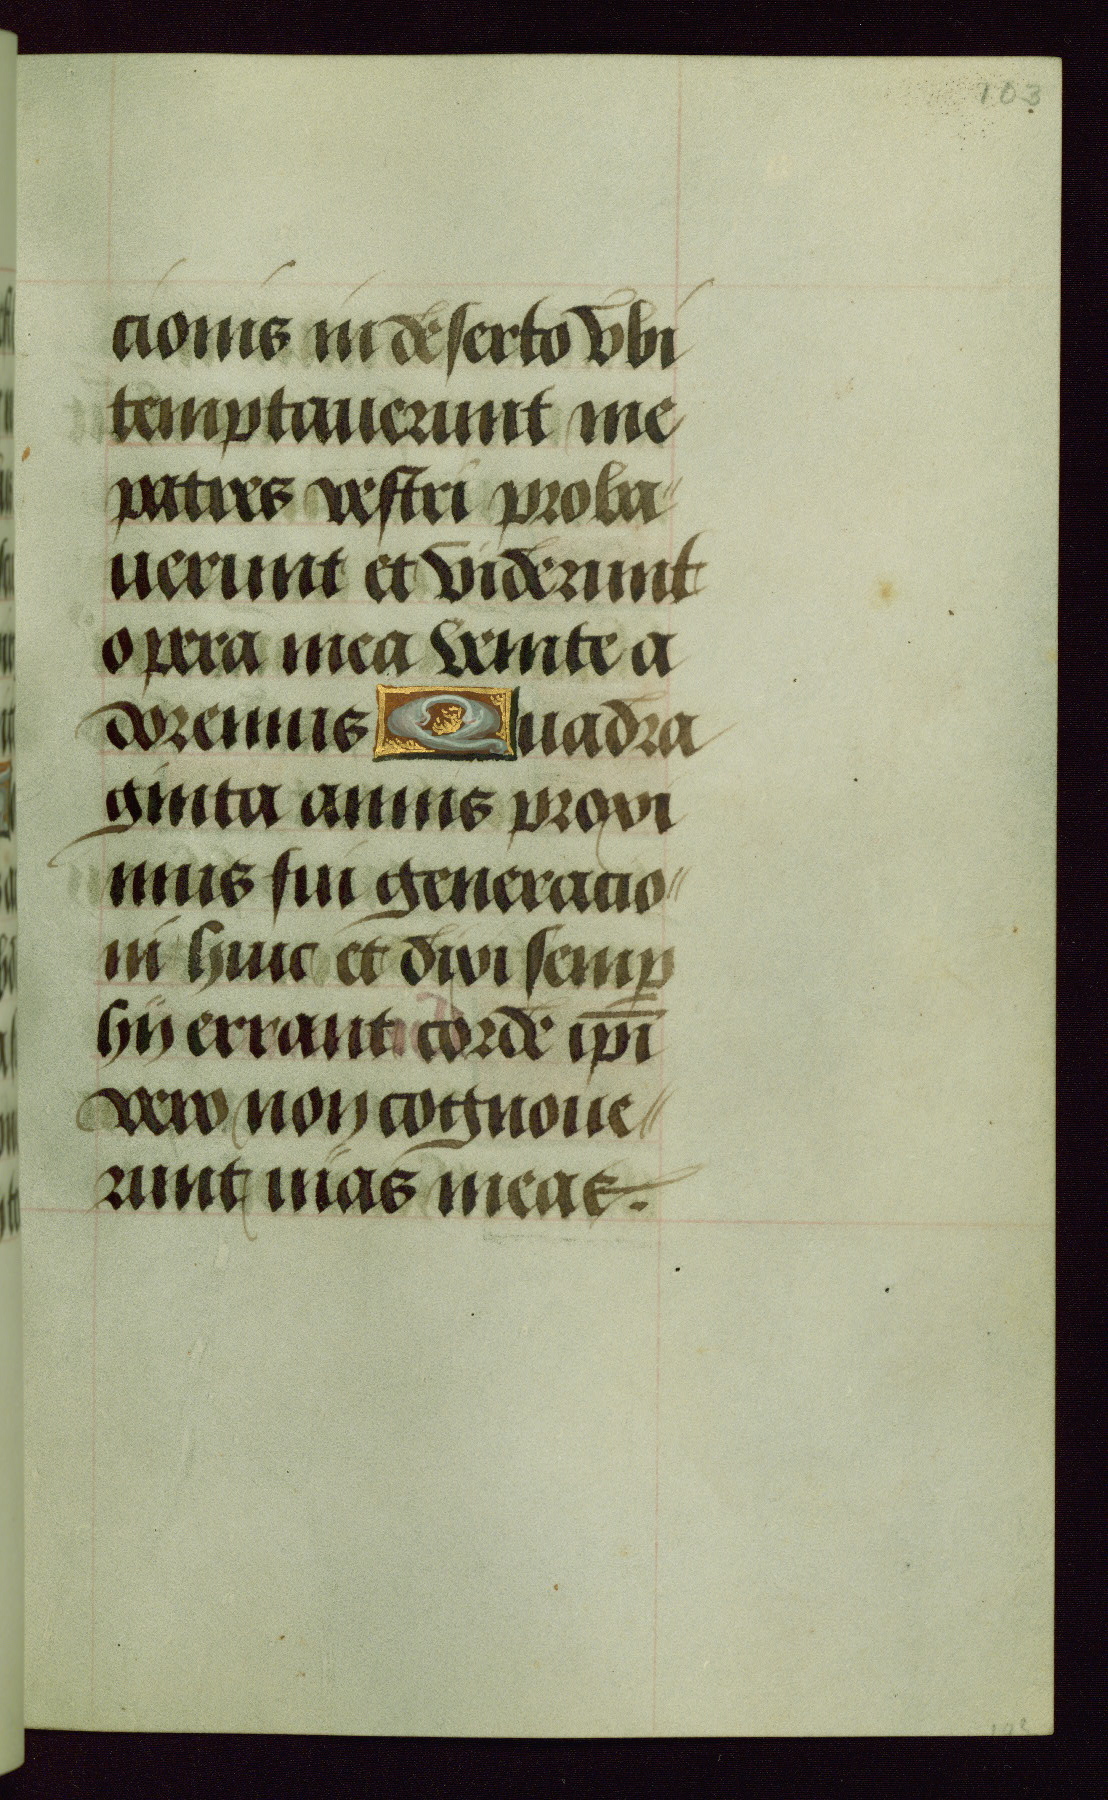 103
cionis in deserto vbi
temptauerunt me
patres vestri proba"
uerunt et viderunt
opera mea venite a
doremus Quadra
ginta annis proxi
mus fui generacio"
ni huic et dixi semp
hij errant corde ipi
vero non cognoue"
runt uias meas.